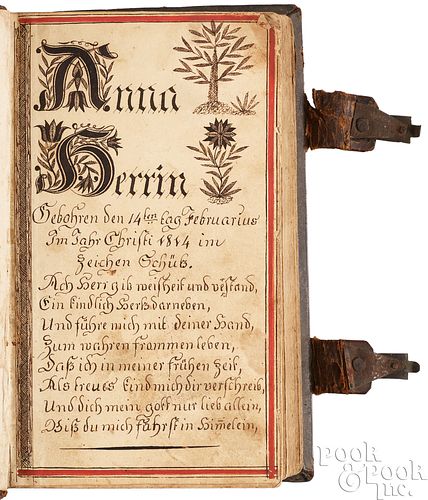 Anna
Herrin
Gebohren den 14ten tag Februarius
Im Jahr Christi 1814 im
Zeichen Schütz.
Ach Herr gib weisheit und verstand,
Ein kindlich Hertz darneben,
Und führe mich mit deiner Hand,
Zum wahren frommen leben,
Daß ich in meiner frühen Zeit,
Als treues kind mich dir verschreib,
Und dich mein gott nur lieb allein,
Biß du mich führst in Him̄elein,
POOK
& POOK
Inc.